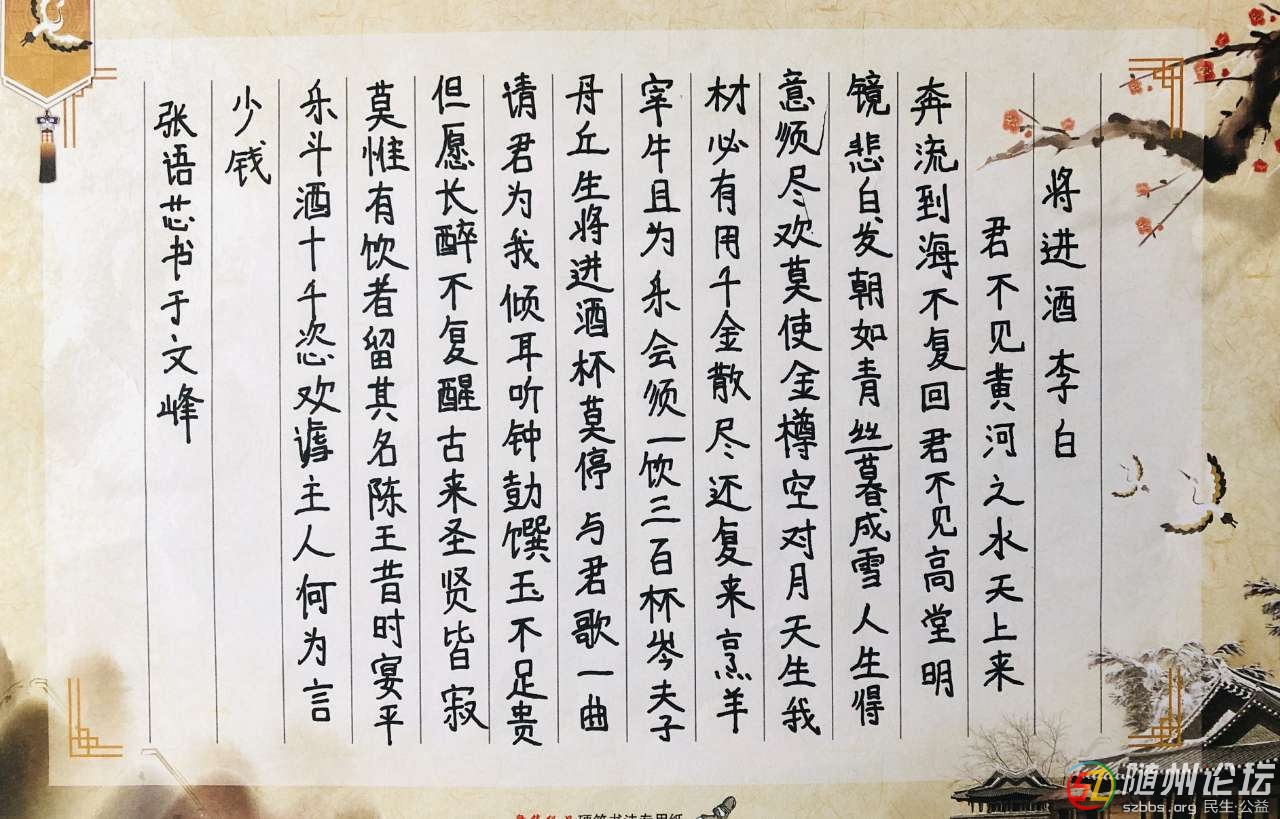 将进酒 李白
君不见黄河之水天上来
奔流到海不复回君不见高堂明
镜悲白发朝如青丝暮成雪人生得
意须尽欢莫使金樽空对月天生我
材必有用千金散尽还复来烹羊
宰牛且为乐会须一饮三百杯岑夫子
丹丘生将进酒杯莫停与君歌一曲
请君为我倾耳听钟鼓馔玉不足贵
但愿长醉不复醒古来圣贤皆寂
莫惟有饮者留其名陈王昔时宴平
乐斗酒十千恣欢谑主人何为言
少钱
张语芯书于文峰
硬笔书法专用纸
随州论坛
szbbs.org 民生·公益